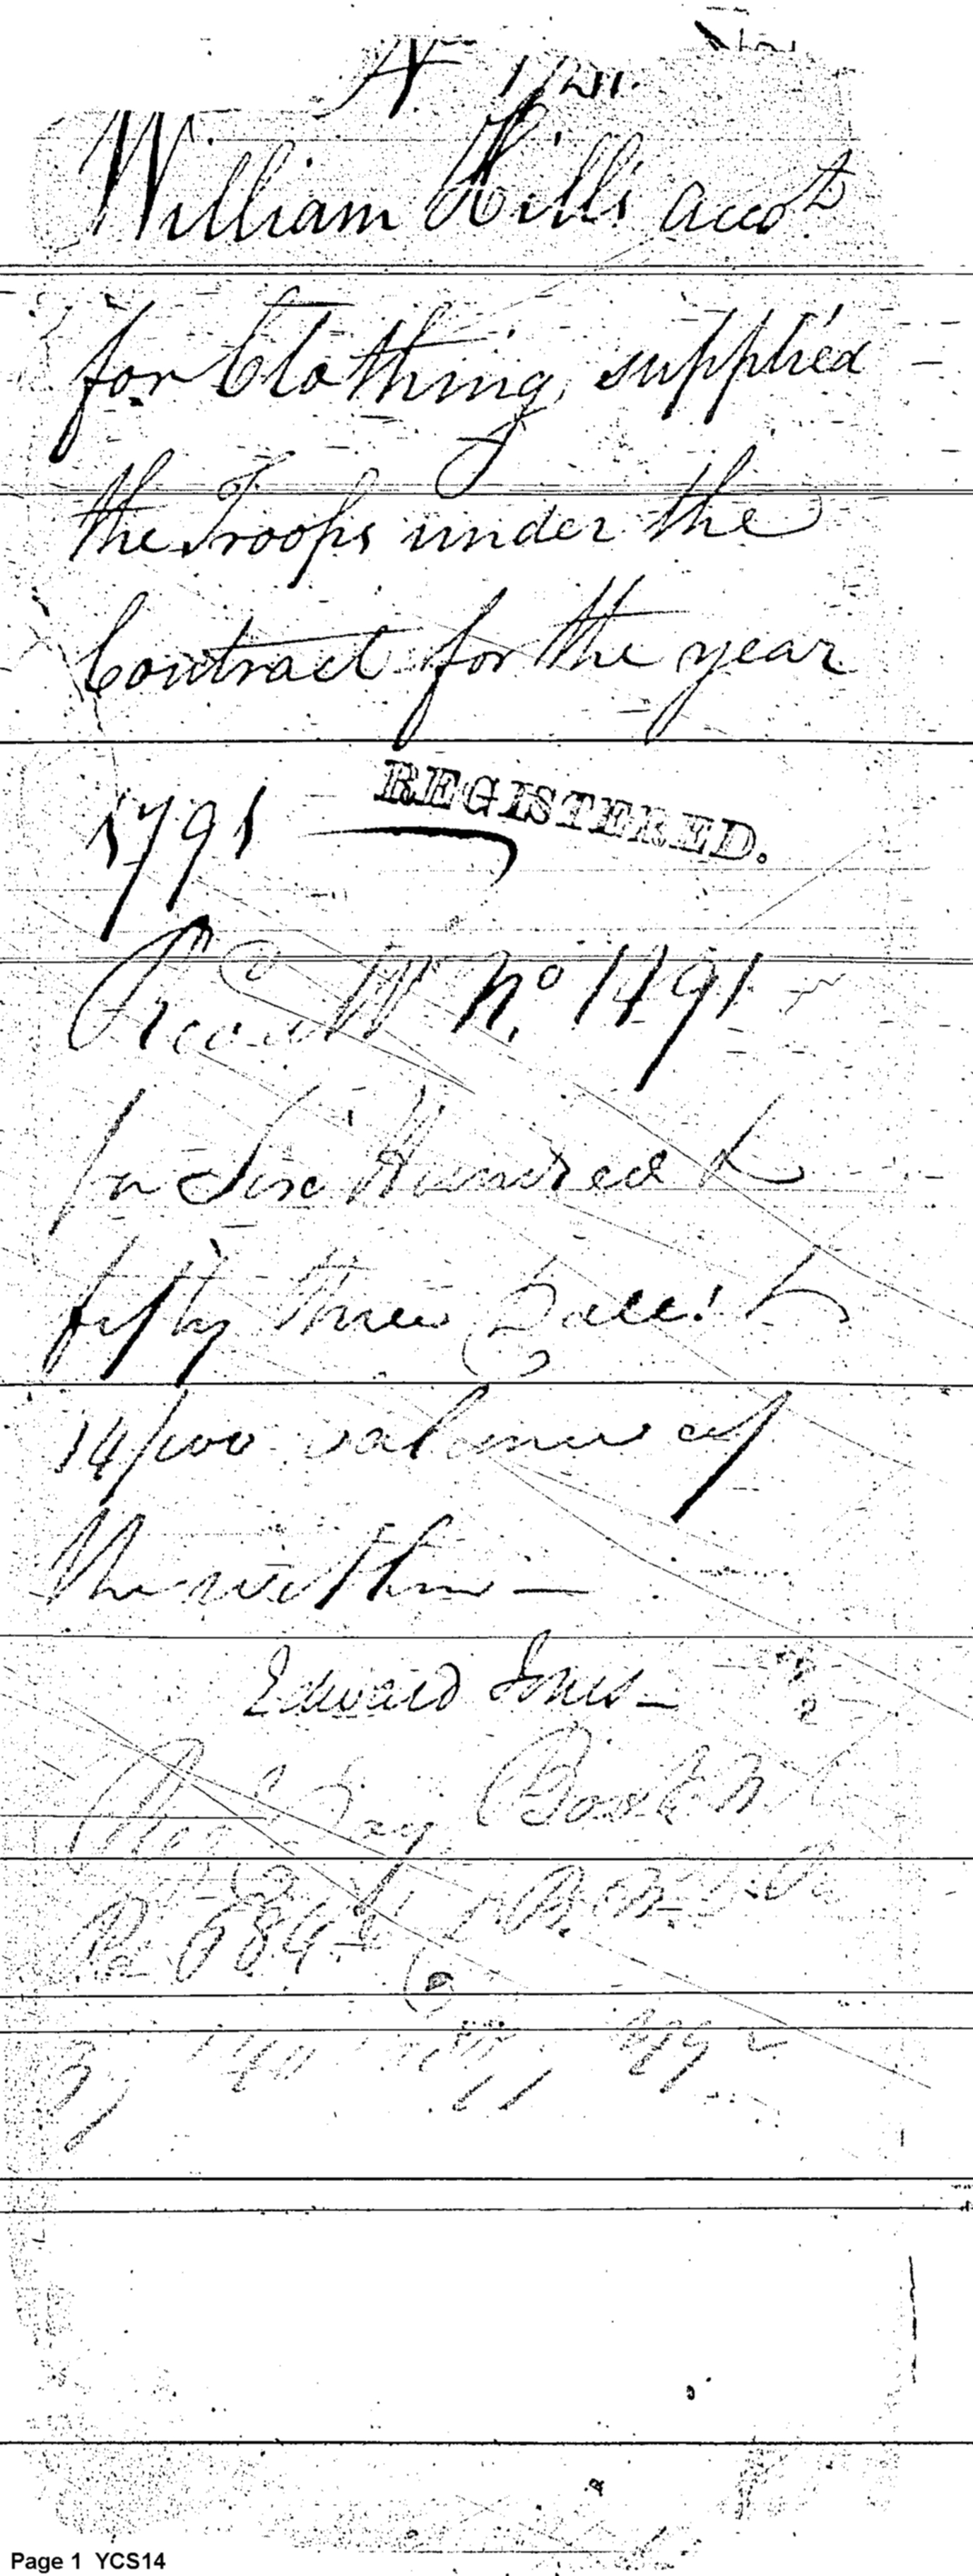 William Hills accot
for Clothing, supplied
the Troops under the
Contract for the year
1791
REGISTERED.
Recd Wt No 1491
for Six Hundred &
fifty three Doll.s &
14/100 balance of
the within —
Edward Jones —
Regd Day Book N
Pa 684
Page 1 YCS14